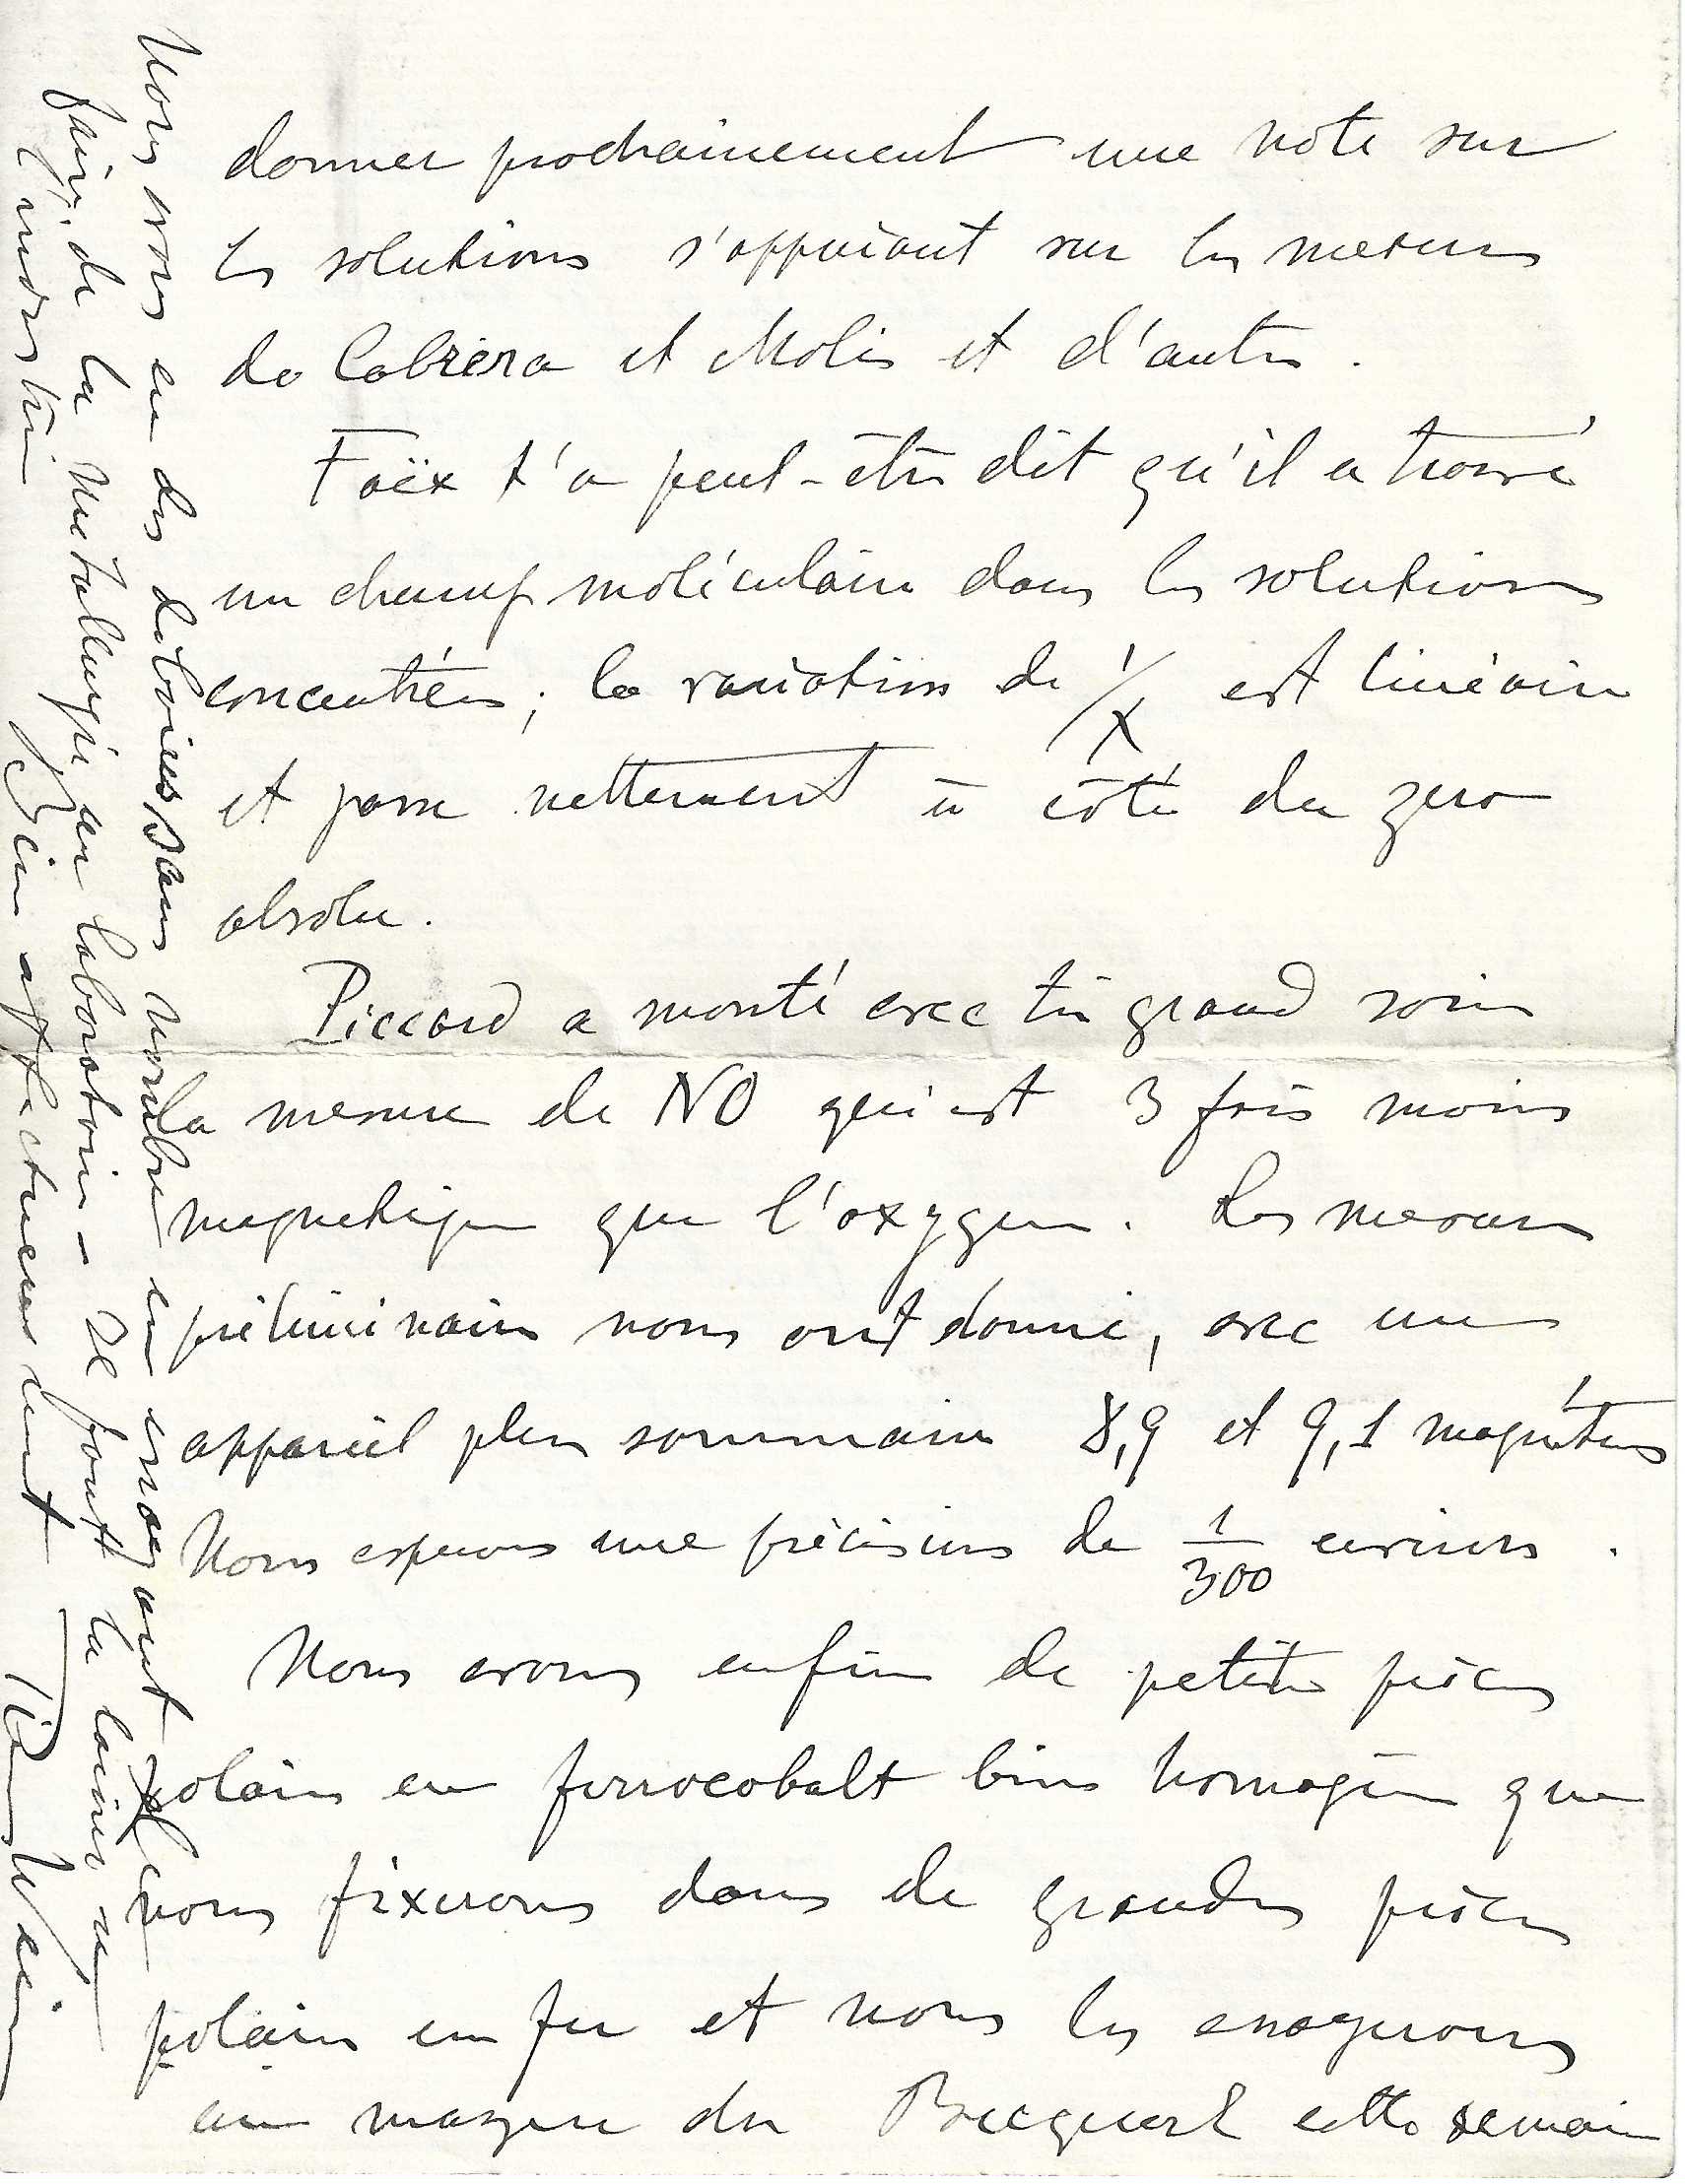 donner prochainement une note sur
les solutions s'appuiant sur les mesures
de Cabrera et Moles et d'autres.
Foëx t'a peut-être dit qu'il a trouvé
un champ moléculaire dans les solutions
concentrées; la variation de 1/χ est linéaire
et passe nettement à côté du zero
absolu.
Piccard a monté avec très grand soin
la mesure de NO qui est 3 fois moins
magnetique que l'oxygène. Les mesures
préliminaires nous ont donné, avec un
appareil plus sommaire 8,9 et 9,1 magnétons
Nous esperons une précision de 1/300 environ.
Nous avons enfin de petites pièces
polaires en ferrocobalt bien homogène que
nous fixerons dans de grandes pièces
polaires en fer et nous les essayerons
au moyen du Becquerel cette semaine
Nous avons eu des déboires sans nombre en essayant de
faire de la Metallurgie au laboratoire - Il faut la laisser à
l'industrie Bien affectueusement Pierre Weiss